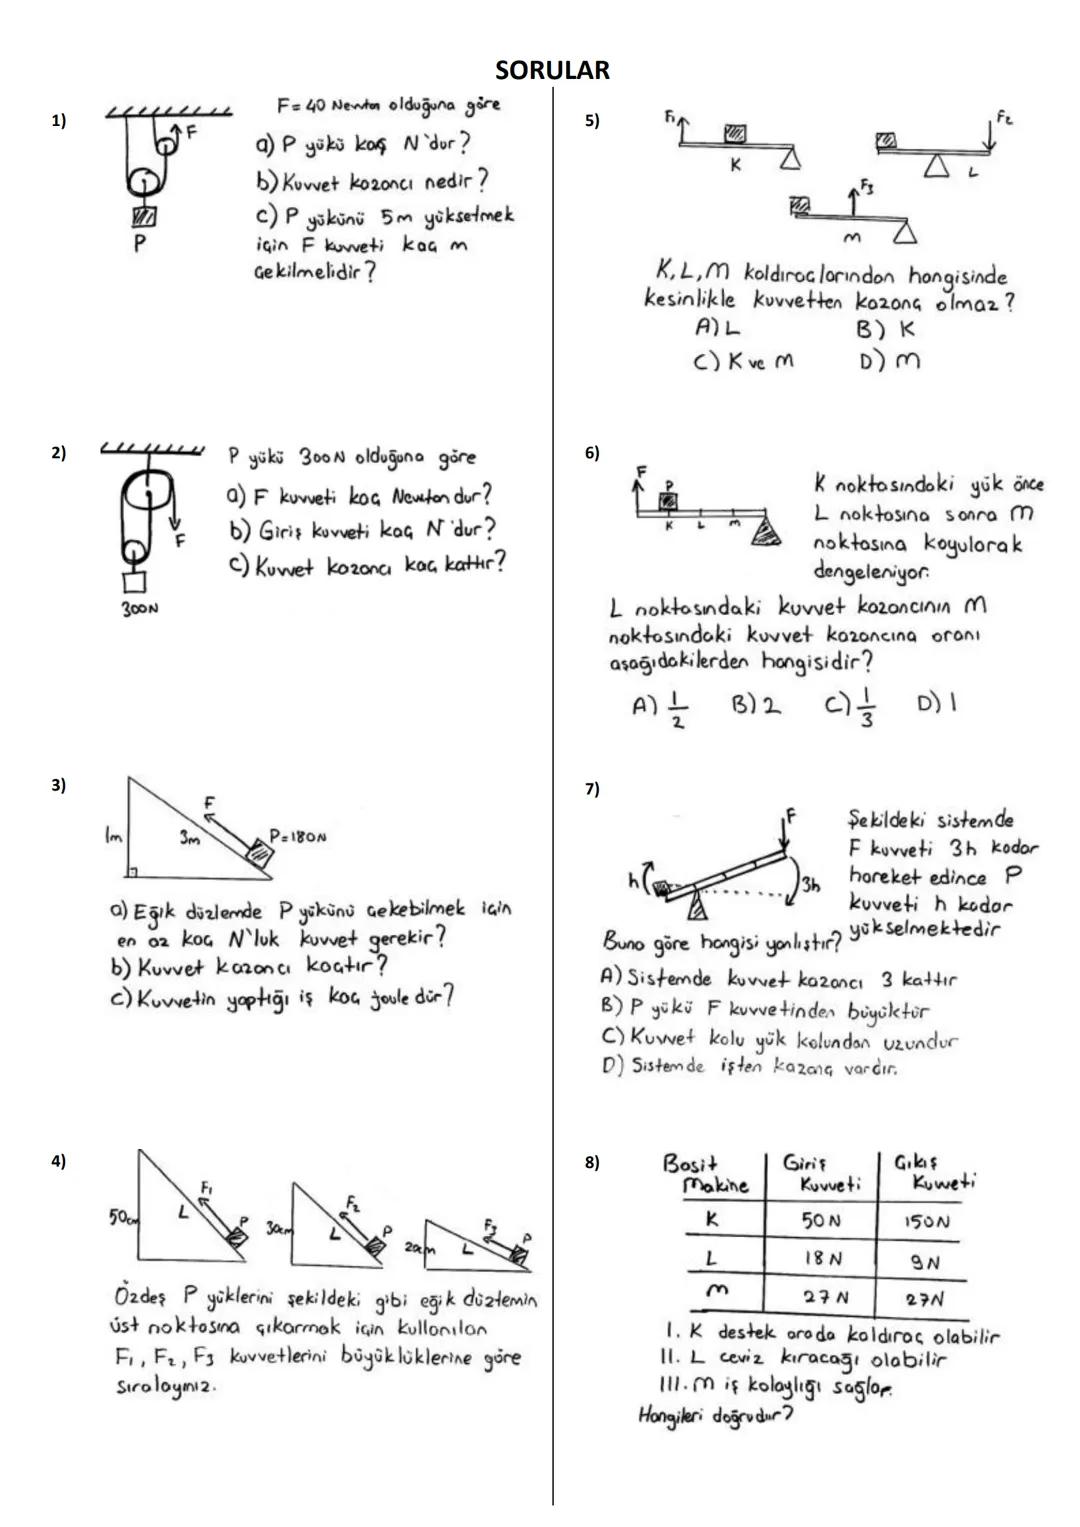 SORULAR
1)
F
P
F= 40 Newton olduğuna göre
a) P yükü kaç N'dur?
b) Kuvvet kazancı nedir?
c) P yükünü 5m yükseltmek
için F kuvveti kaç m
çekilmelidir?
2)
F
300N
P yükü 300N olduğuna göre
a) F kuvveti kaç Newton dur?
b) Giriş kuvveti kaç N'dur?
c) Kuvvet kazancı kaç kattır?
3)
1m
3m
F
P=180N
a) Eğik düzlemde P yükünü çekebilmek için
en az kaç N'luk kuvvet gerekir?
b) Kuvvet kazancı kaçtır?
c) Kuvvetin yaptığı iş kaç joule dür?
4)
50cm
L
F1
P
30cm
L
F2
P
20cm
L
F3
P
Özdeş P yüklerini şekildeki gibi eğik düzlemin
üst noktasına çıkarmak için kullanılan
F1, F2, F3 kuvvetlerini büyüklüklerine göre
sıralayınız.
5)
F1
K
F2
L
F3
M
K, L, M kaldıraçlarından hangisinde
kesinlikle kuvvetten kazanç olmaz?
A) L B) K
C) K ve M D) M
6)
F
P
K L M
K noktasındaki yük önce
L noktasına sonra M
noktasına koyularak
dengeleniyor.
L noktasındaki kuvvet kazancının M
noktasındaki kuvvet kazancına oranı
aşağıdakilerden hangisidir?
A) 1/2 B) 2 C) 1/3 D) 1
7)
F
h
3h
Şekildeki sistemde
F kuvveti 3h kadar
hareket edince P
kuvveti h kadar
yükselmektedir
Buna göre hangisi yanlıştır?
A) Sistemde kuvvet kazancı 3 kattır
B) P yükü F kuvvetinden büyüktür
C) Kuvvet kolu yük kolundan uzundur
D) Sistemde işten kazanç vardır.
8)
Basit Makine Giriş Kuvveti Çıkış Kuvveti
K 50 N 150N
L 18 N 9N
M 27 N 27N
I. K destek arada kaldıraç olabilir
II. L ceviz kıracağı olabilir
III. M iş kolaylığı sağlar.
Hangileri doğrudur?